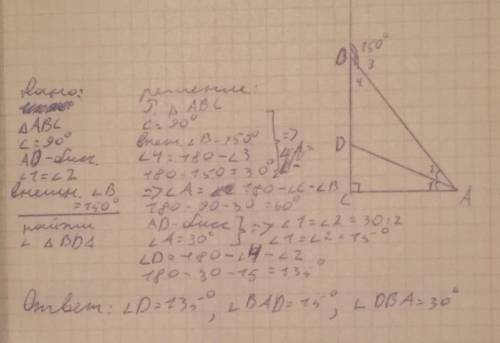 Дано:
△ABC
∠C=90°
AD-бисс.
∠1=∠2
внешн. ∠B
=150°
найти
∠ △BDA
решение:
△ABC
C=90°
внеш. ∠B=150°
∠4=180-∠3
180-150=30°
=>
=>∠A= 180-∠C-∠B
180-90-30=60°
AD-бисс
∠A=30°
=> ∠1=∠2=30:2
∠1=∠2=15°
∠D=180-∠4-∠2
180-30-15=135°
Ответ: ∠D=135°, ∠BAD=15°, ∠DBA=30°
B 150°
3
4
D
2
1
C A